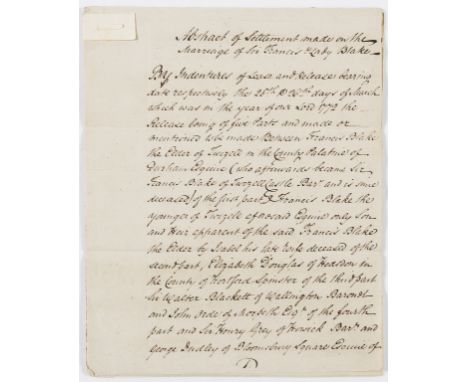 Abstract of Settlement made on the
Marriage of Sir Francis & Lady Blake
By Indentures of Lease and Release bearing
date respectively the 25th & 26th days of March
which was in the year of our Lord 1772 the
Release being of five Parts and made or
mentioned to be made Between Francis Blake
the Elder of Twizell in the County Palatine of
Durham Esquire (who afterwards became Sir
Francis Blake of Twizell Castle Bart and is since
deceased) of the first part Francis Blake the
younger of Twizell aforesaid Esquire only Son
and Heir apparent of the said Francis Blake
the Elder by Isabel his late Wife deceased of the
second part, Elizabeth Douglas of Hodsdon in
the County of Hertford Spinster of the third part
Sir Walter Blackett of Wallington Baronet
and John Orde of Morpeth Esqr of the fourth
part and Sir Henry Grey of Howick Bart and
George Dudley of Bloomsbury Square Esquire of
1